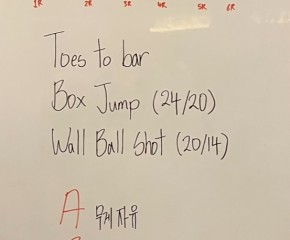 1R 2R 3R 4R 5R 6R
Toes to bar
Box Jump (24/20)
Wall Ball Shot (20/14)
A 무게 자유